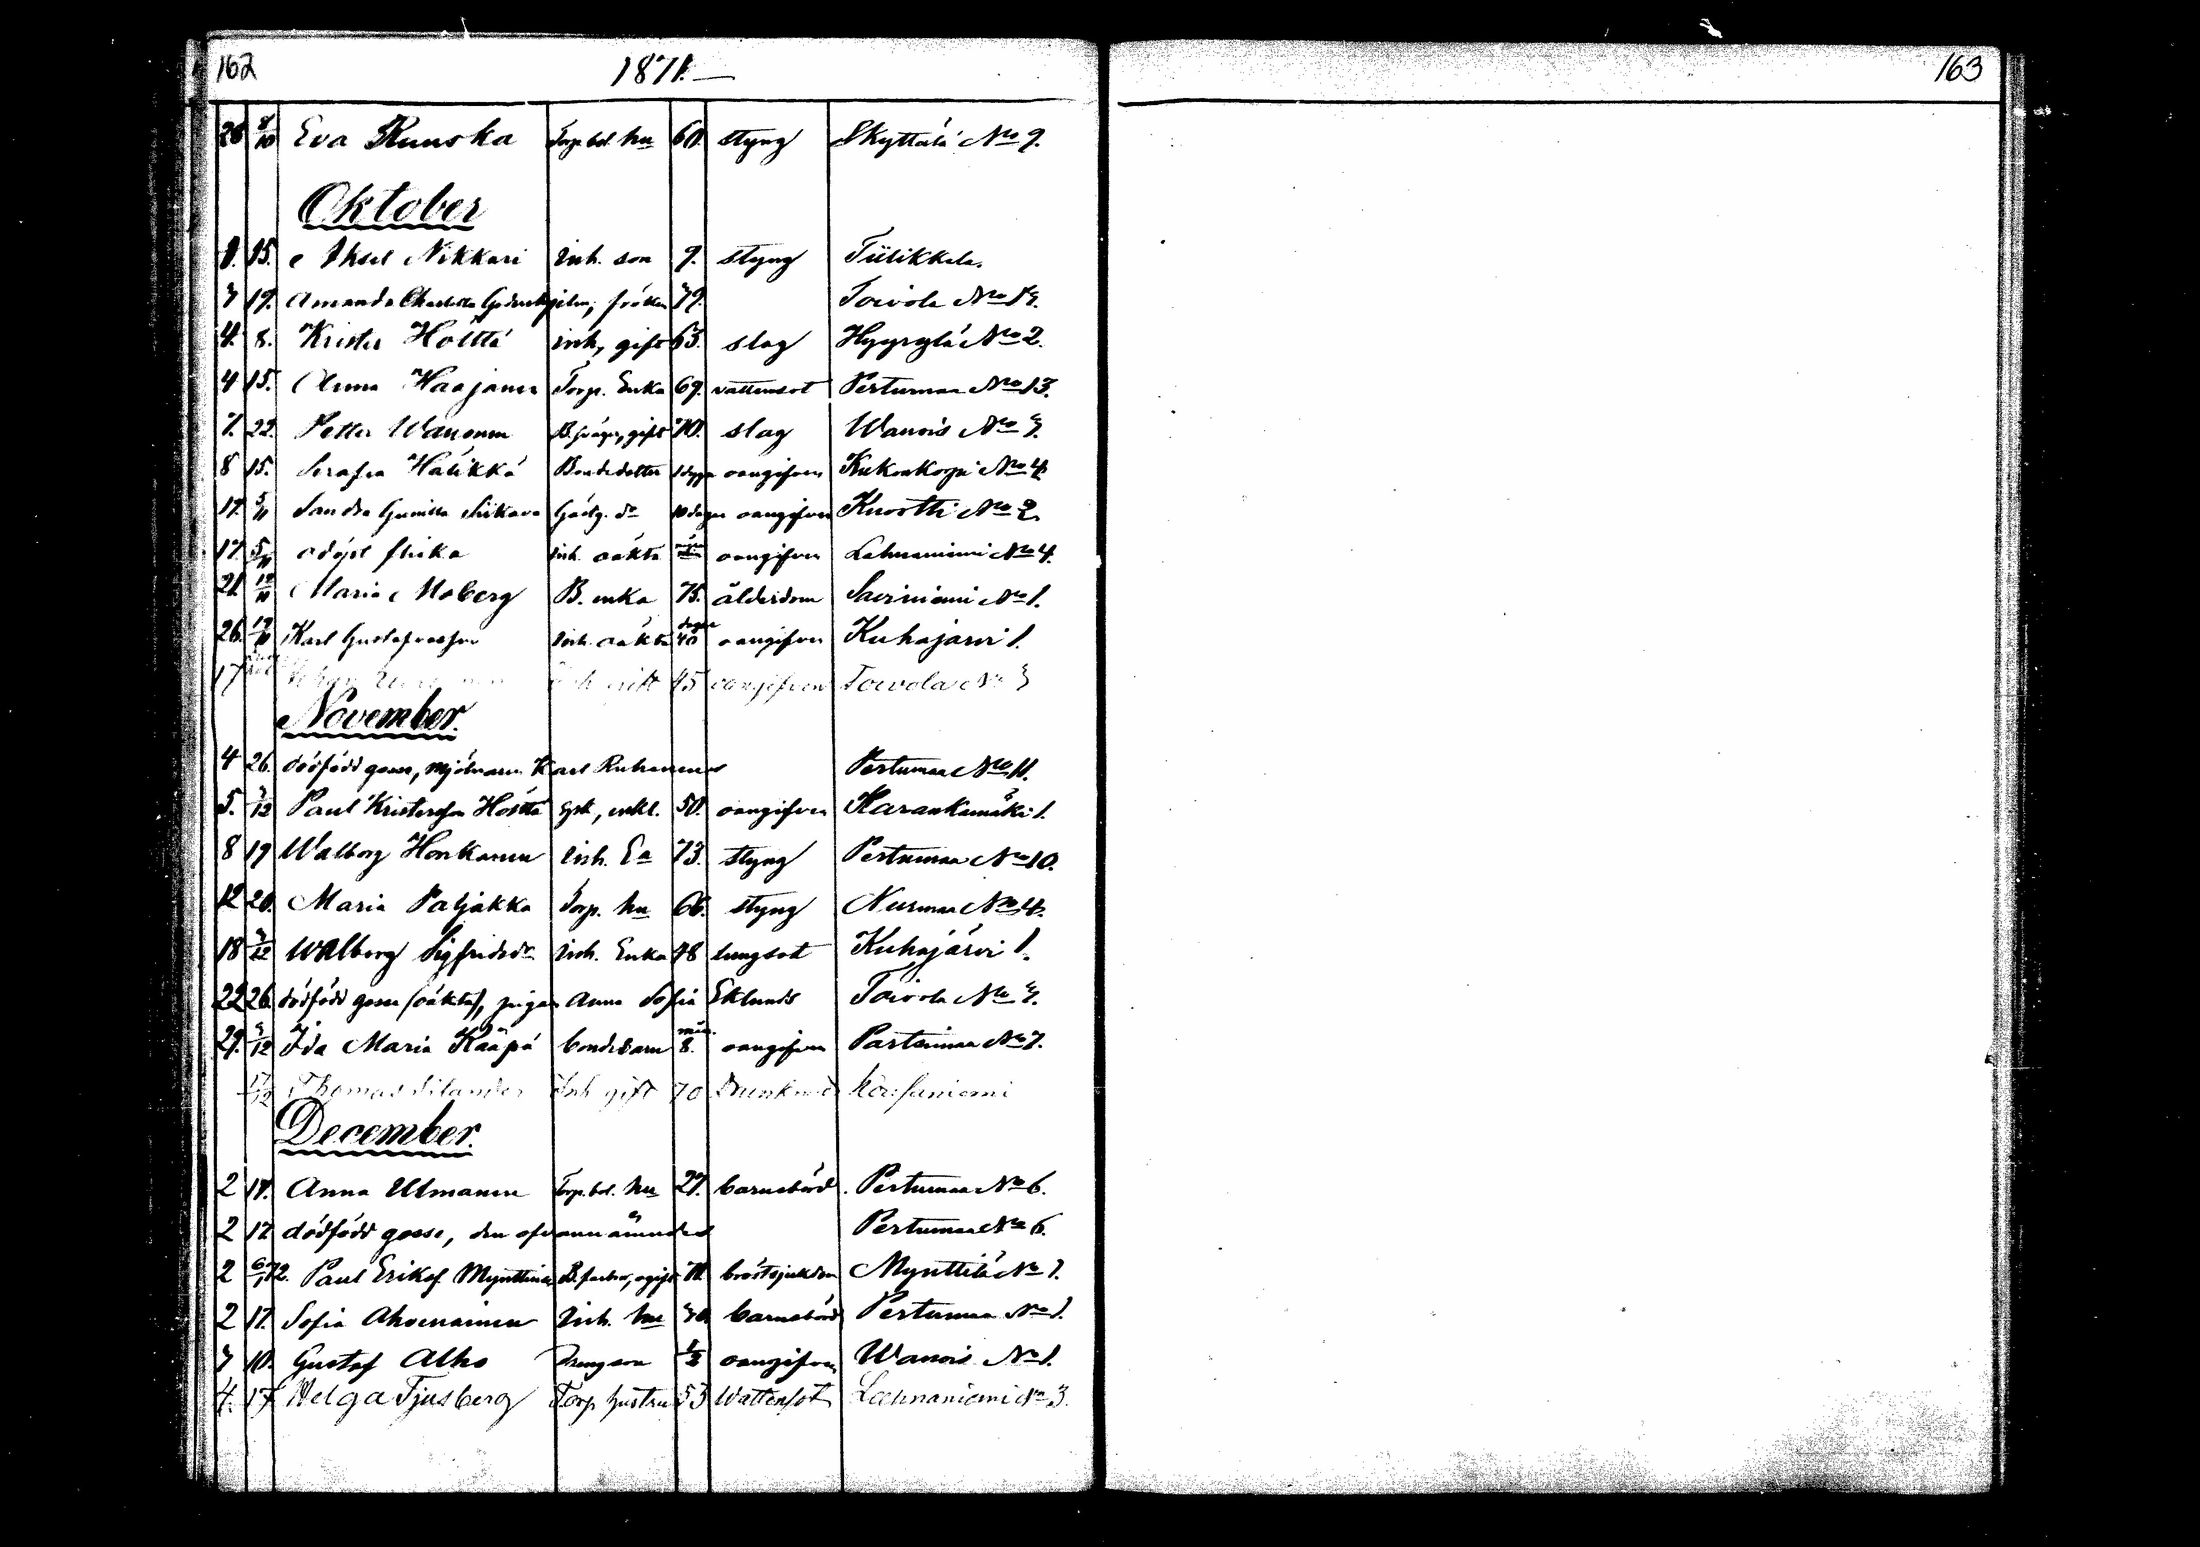 162
1871.
163
26 8/10 Eva Ruuska Torp.bol. hu 60. styng Skyttälä No 9.
Oktober
1. 15. Aksel Nikkari inh. son 9. styng Tiilikkala.
3 19. Amanda Charlotta fröken 79. Toivola No
4. 8. Krister Hölttä inh, gift 63. slag Hyyrylä No 2.
4 15. Anna Haajanen Torp. Enka 69. vattensot Pertumaa No 13.
7. 22. Petter Wanonen gift 70. slag Wanois No 3.
8 15. Serafia Häkikkä Bondedotter oangifven Kukonkorpi No 4
17. 5/11 Sandra Gunilla dr 10 dagar oangifven Kuortti No 2
17. 5/11 odöpt flicka inh. oäkta oangifven Lahnaniemi No 4.
21. 12/11 Maria Moberg B. enka 75. ålderdom Saviniemi No 1.
26. 12/11 Karl Gustafsson inh. oäkta dagar 40 oangifven Kuhajärvi 1.
17 Johan inh gift 45 oangifven Toivola No 3
November.
4 26. dödfödd gosse, mjölnaren Karl Ruhanens Pertumaa No 11.
5. 3/12 Paul Kristersson Hölttä enkl. 50. oangifven Karankamäki 1.
8 19 Walborg Honkanen inh. Ea 73. styng Pertumaa No 10.
12 20. Maria Paljakka Torp. hu 66. styng Nurmaa No 4.
18 3/12 Walborg Sigfridsdr inh. Enka 48 lungsot Kuhajärvi 1.
22 26. dödfödd gosse (oäkta), pigan Anna Sofia Eklunds Toivola No 3.
29. 3/12 Ida Maria Kääpä bondebarn mån. 8. oangifven Partaimaa No 7.
17/12 Thomas Silander Inh gift 70 Drunknad
December.
2 17. Anna Ulmanen Torp.bol. hu 27. barnsbörd. Pertumaa No 6.
2 17. dödfödd gosse, den ofvannämndas Pertumaa No 6.
2 6/1 72. Paul Eriksf Mynttinen B. farbr, ogift 71. bröstsjukdom Mynttilä No 1.
2 17. Sofia Ahvenainen Inh. hu 30. barnsbörd Pertumaa No 1.
3 10. Gustaf Alho Drengson 1/2 oangifven Wanois No 1.
4. 17 Helga Tjusberg Torp hustru 53 Wattensot Lahnaniemi No 3.